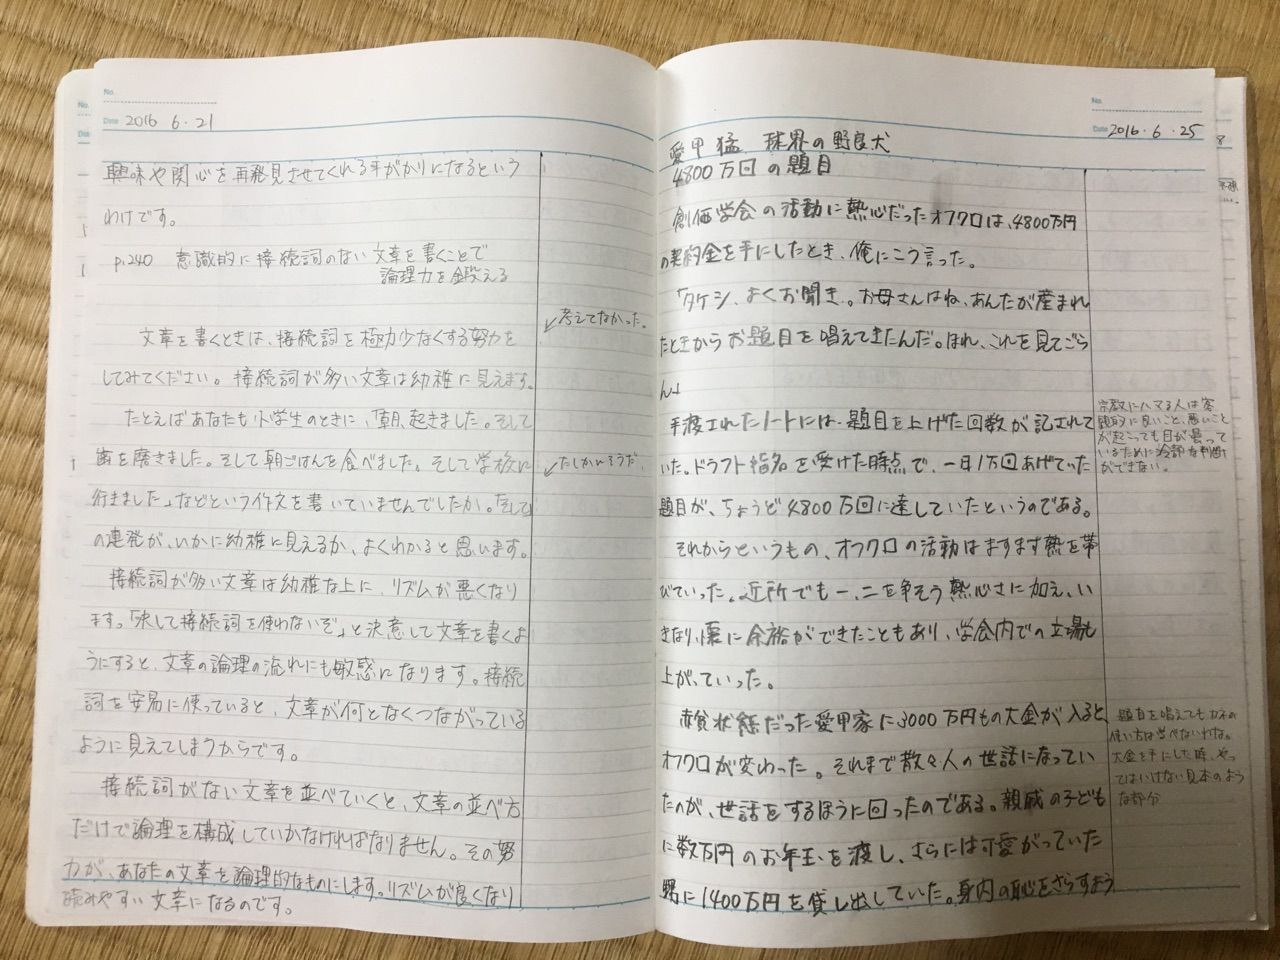 No.
Date 2016 6・21
興味や関心を再発見させてくれる手がかりになるという
わけです。
p.240 意識的に接続詞のない文章を書くことで
論理力を鍛える
文章を書くときは、接続詞を極力少なくする努力を
してみてください。接続詞が多い文章は幼稚に見えます。
たとえばあなたも小学生のときに、「朝、起きました。そして
歯を磨きました。そして朝ごはんを食べました。そして学校に
行きました」などという作文を書いていませんでしたか。「そして」
の連発が、いかに幼稚に見えるか、よくわかると思います。
接続詞が多い文章は幼稚な上に、リズムが悪くなり
ます。「決して接続詞を使わないぞ」と決意して文章を書くよ
うにすると、文章の論理の流れにも敏感になります。接続
詞を安易に使っていると、文章が何となくつながっている
ように見えてしまうからです。
接続詞がない文章を並べていくと、文章の並べ方
だけで論理を構成していかなければなりません。その努
力が、あなたの文章を論理的なものにします。リズムが良くなり
読みやすい文章になるのです。
↙考えてなかった。
↙たしかにそうだ、
No.
Date 2016・6・25
愛甲猛 球界の野良犬
4800万回の題目
創価学会の活動に熱心だったオフクロは、4800万円
の契約金を手にしたとき、俺にこう言った。
「タケシ、よくお聞き。お母さんはね、あんたが産まれ
たときからお題目を唱えてきたんだ。ほれ、これを見てごら
ん」
手渡されたノートには、題目を上げた回数が記されて
いた。ドラフト指名を受けた時点で、一日1万回あげていた
題目が、ちょうど4800万回に達していたというのである。
それからというもの、オフクロの活動はますます熱を帯
びていった。近所でも一、二を争そう熱心さに加え、い
きなり懐に余裕ができたこともあり、学会内での立場も
上がっていった。
赤貧状態だった愛甲家に3000万円もの大金が入ると
オフクロが変わった。それまで散々人の世話になってい
たのが、世話をするほうに回ったのである。親戚の子ども
に数万円のお年玉を渡し、さらには可愛がっていた
甥に1400万円を貸し出していた。身内の恥をさらすよう
宗教にハマる人は客
観的に良いこと、悪いこと
が起こっても目が曇って
いるために冷静な判断
ができない。
題目を唱えてもカネの
使い方は学べないわな。
大金を手にした時、やっ
てはいけない見本のよう
な部分